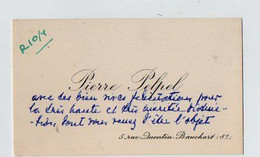 R10/4
Pierre Pelpel
avec des bien vives félicitations pour
la très haute et très méritée distinc-
-tion dont vous venez d'être l'objet
5 rue Quentin-Bauchart (8e)